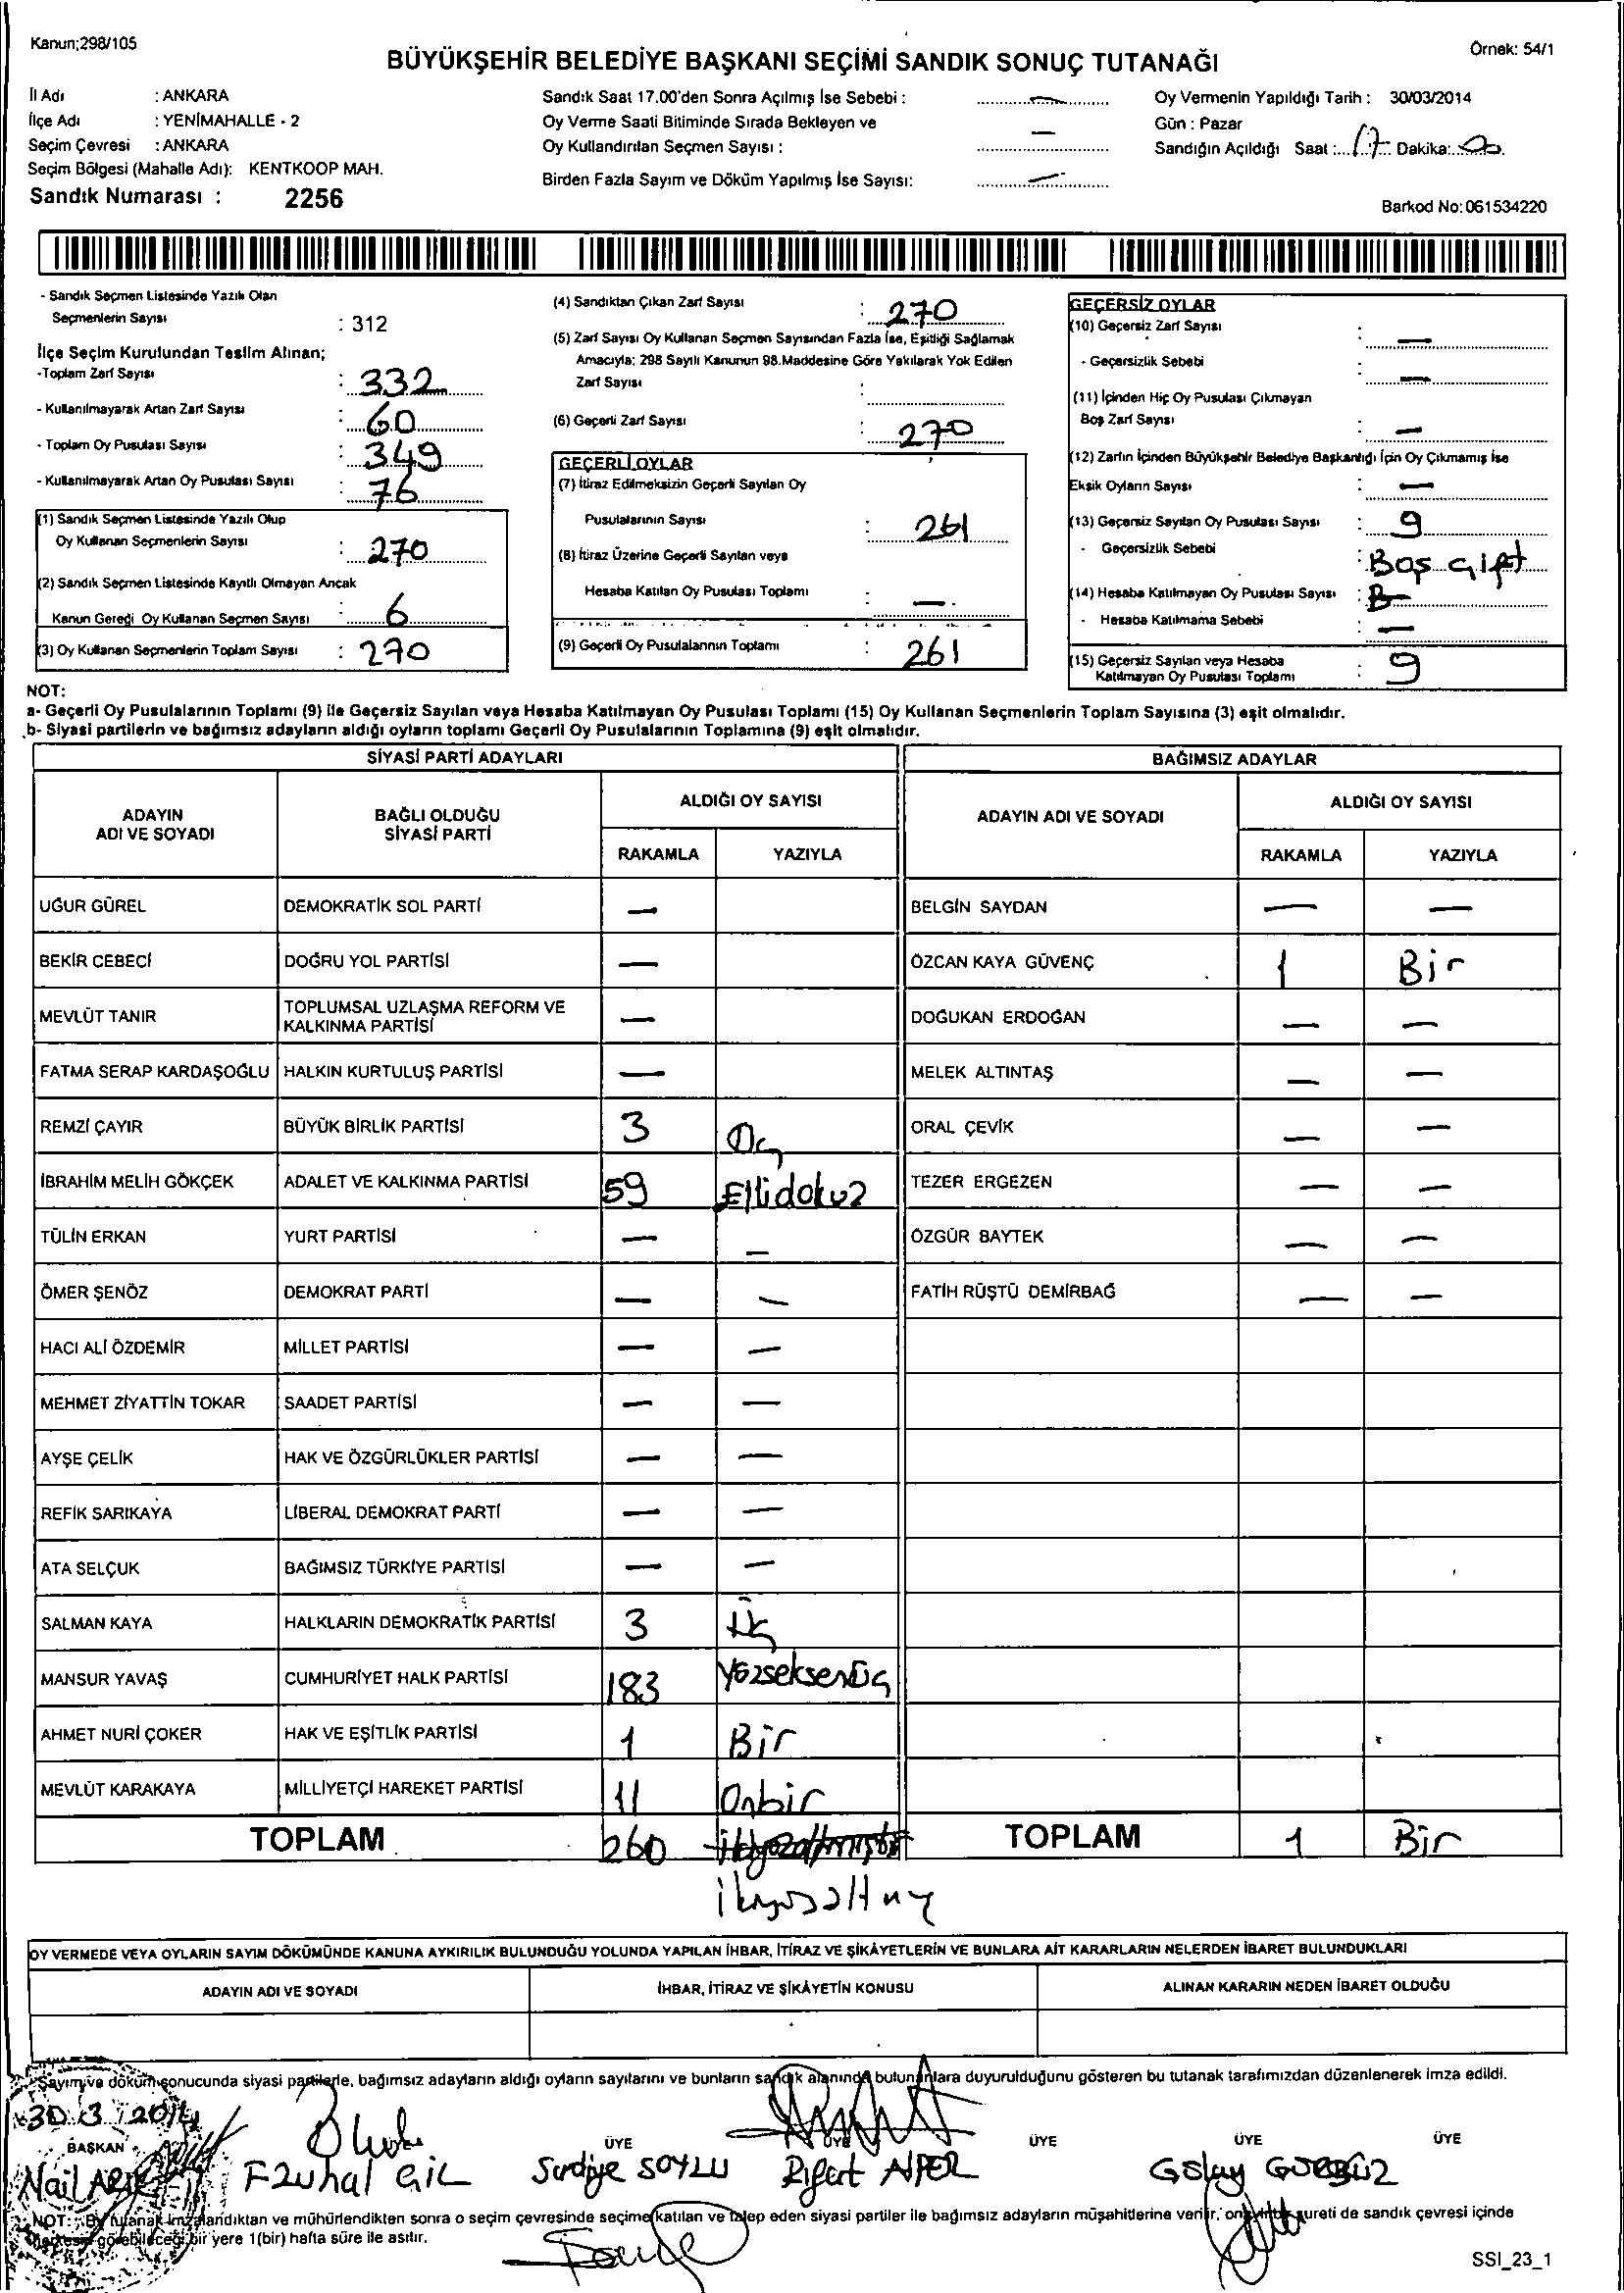 Kanun;298/105
Örnek: 54/1
BÜYÜKŞEHİR BELEDİYE BAŞKANI SEÇİMİ SANDIK SONUÇ TUTANAĞI
İl Adı : ANKARA
İlçe Adı : YENİMAHALLE - 2
Seçim Çevresi : ANKARA
Seçim Bölgesi (Mahalle Adı): KENTKOOP MAH.
Sandık Numarası : 2256
Sandık Saat 17.00'den Sonra Açılmış İse Sebebi : —
Oy Verme Saati Bitiminde Sırada Bekleyen ve
Oy Kullandırılan Seçmen Sayısı : —
Birden Fazla Sayım ve Döküm Yapılmış İse Sayısı: —
Oy Vermenin Yapıldığı Tarih : 30/03/2014
Gün : Pazar
Sandığın Açıldığı Saat : 17 Dakika:
Barkod No:061534220
- Sandık Seçmen Listesinde Yazılı Olan
Seçmenlerin Sayısı : 312
İlçe Seçim Kurulundan Teslim Alınan;
-Toplam Zarf Sayısı : 332
- Kullanılmayarak Artan Zarf Sayısı : 60
- Toplam Oy Pusulası Sayısı : 349
- Kullanılmayarak Artan Oy Pusulası Sayısı : 76
(1) Sandık Seçmen Listesinde Yazılı Olup
Oy Kullanan Seçmenlerin Sayısı : 270
(2) Sandık Seçmen Listesinde Kayıtlı Olmayan Ancak
Kanun Gereği Oy Kullanan Seçmen Sayısı : 6
(3) Oy Kullanan Seçmenlerin Toplam Sayısı : 270
(4) Sandıktan Çıkan Zarf Sayısı : 270
(5) Zarf Sayısı Oy Kullanan Seçmen Sayısından Fazla İse, Eşitliği Sağlamak
Amacıyla; 298 Sayılı Kanunun 98.Maddesine Göre Yakılarak Yok Edilen
Zarf Sayısı :
(6) Geçerli Zarf Sayısı : 270
GEÇERLİ OYLAR
(7) İtiraz Edilmeksizin Geçerli Sayılan Oy
Pusulalarının Sayısı : 261
(8) İtiraz Üzerine Geçerli Sayılan veya
Hesaba Katılan Oy Pusulası Toplamı : —
(9) Geçerli Oy Pusulalarının Toplamı : 261
GEÇERSİZ OYLAR
(10) Geçersiz Zarf Sayısı : —
- Geçersizlik Sebebi : —
(11) İçinden Hiç Oy Pusulası Çıkmayan
Boş Zarf Sayısı : —
(12) Zarfın İçinden Büyükşehir Belediye Başkanlığı İçin Oy Çıkmamış İse
Eksik Oyların Sayısı : —
(13) Geçersiz Sayılan Oy Pusulası Sayısı : 9
- Geçersizlik Sebebi : Boş çift
(14) Hesaba Katılmayan Oy Pusulası Sayısı :
- Hesaba Katılmama Sebebi : —
(15) Geçersiz Sayılan veya Hesaba
Katılmayan Oy Pusulası Toplamı : 9
NOT:
a- Geçerli Oy Pusulalarının Toplamı (9) ile Geçersiz Sayılan veya Hesaba Katılmayan Oy Pusulası Toplamı (15) Oy Kullanan Seçmenlerin Toplam Sayısına (3) eşit olmalıdır.
b- Siyasi partilerin ve bağımsız adayların aldığı oyların toplamı Geçerli Oy Pusulalarının Toplamına (9) eşit olmalıdır.
SİYASİ PARTİ ADAYLARI
BAĞIMSIZ ADAYLAR
ADAYIN ADI VE SOYADI
BAĞLI OLDUĞU SİYASİ PARTİ
ALDIĞI OY SAYISI
RAKAMLA YAZIYLA
ADAYIN ADI VE SOYADI
ALDIĞI OY SAYISI
RAKAMLA YAZIYLA
UĞUR GÜREL DEMOKRATİK SOL PARTİ — BELGİN SAYDAN — —
BEKİR CEBECİ DOĞRU YOL PARTİSİ — ÖZCAN KAYA GÜVENÇ 1 Bir
MEVLÜT TANIR TOPLUMSAL UZLAŞMA REFORM VE KALKINMA PARTİSİ — DOĞUKAN ERDOĞAN — —
FATMA SERAP KARDAŞOĞLU HALKIN KURTULUŞ PARTİSİ — MELEK ALTINTAŞ — —
REMZİ ÇAYIR BÜYÜK BİRLİK PARTİSİ 3 Üç ORAL ÇEVİK — —
İBRAHİM MELİH GÖKÇEK ADALET VE KALKINMA PARTİSİ 59 Ellidokuz TEZER ERGEZEN — —
TÜLİN ERKAN YURT PARTİSİ — — ÖZGÜR BAYTEK — —
ÖMER ŞENÖZ DEMOKRAT PARTİ — — FATİH RÜŞTÜ DEMİRBAĞ — —
HACI ALİ ÖZDEMİR MİLLET PARTİSİ — —
MEHMET ZİYATTİN TOKAR SAADET PARTİSİ — —
AYŞE ÇELİK HAK VE ÖZGÜRLÜKLER PARTİSİ — —
REFİK SARIKAYA LİBERAL DEMOKRAT PARTİ — —
ATA SELÇUK BAĞIMSIZ TÜRKİYE PARTİSİ — —
SALMAN KAYA HALKLARIN DEMOKRATİK PARTİSİ 3 Üç
MANSUR YAVAŞ CUMHURİYET HALK PARTİSİ 183 Yüzseksenüç
AHMET NURİ ÇOKER HAK VE EŞİTLİK PARTİSİ 1 Bir
MEVLÜT KARAKAYA MİLLİYETÇİ HAREKET PARTİSİ 11 Onbir
TOPLAM 260 TOPLAM 1 Bir
OY VERMEDE VEYA OYLARIN SAYIM DÖKÜMÜNDE KANUNA AYKIRILIK BULUNDUĞU YOLUNDA YAPILAN İHBAR, İTİRAZ VE ŞİKÂYETLERİN VE BUNLARA AİT KARARLARIN NELERDEN İBARET BULUNDUKLARI
ADAYIN ADI VE SOYADI İHBAR, İTİRAZ VE ŞİKÂYETİN KONUSU ALINAN KARARIN NEDEN İBARET OLDUĞU
Sayım ve döküm sonucunda siyasi partilerle, bağımsız adayların aldığı oyların sayılarını ve bunların sandık alanında bulunanlara duyurulduğunu gösteren bu tutanak tarafımızdan düzenlenerek imza edildi.
30.3.2014
BAŞKAN ÜYE ÜYE ÜYE ÜYE ÜYE
Nail GİL SOYLU ALPER
NOT: Bu tutanak imzalandıktan ve mühürlendikten sonra o seçim çevresinde seçime katılan ve talep eden siyasi partiler ile bağımsız adayların müşahitlerine verilir, sureti de sandık çevresi içinde
görebileceği bir yere 1(bir) hafta süre ile asılır.
SSI_23_1